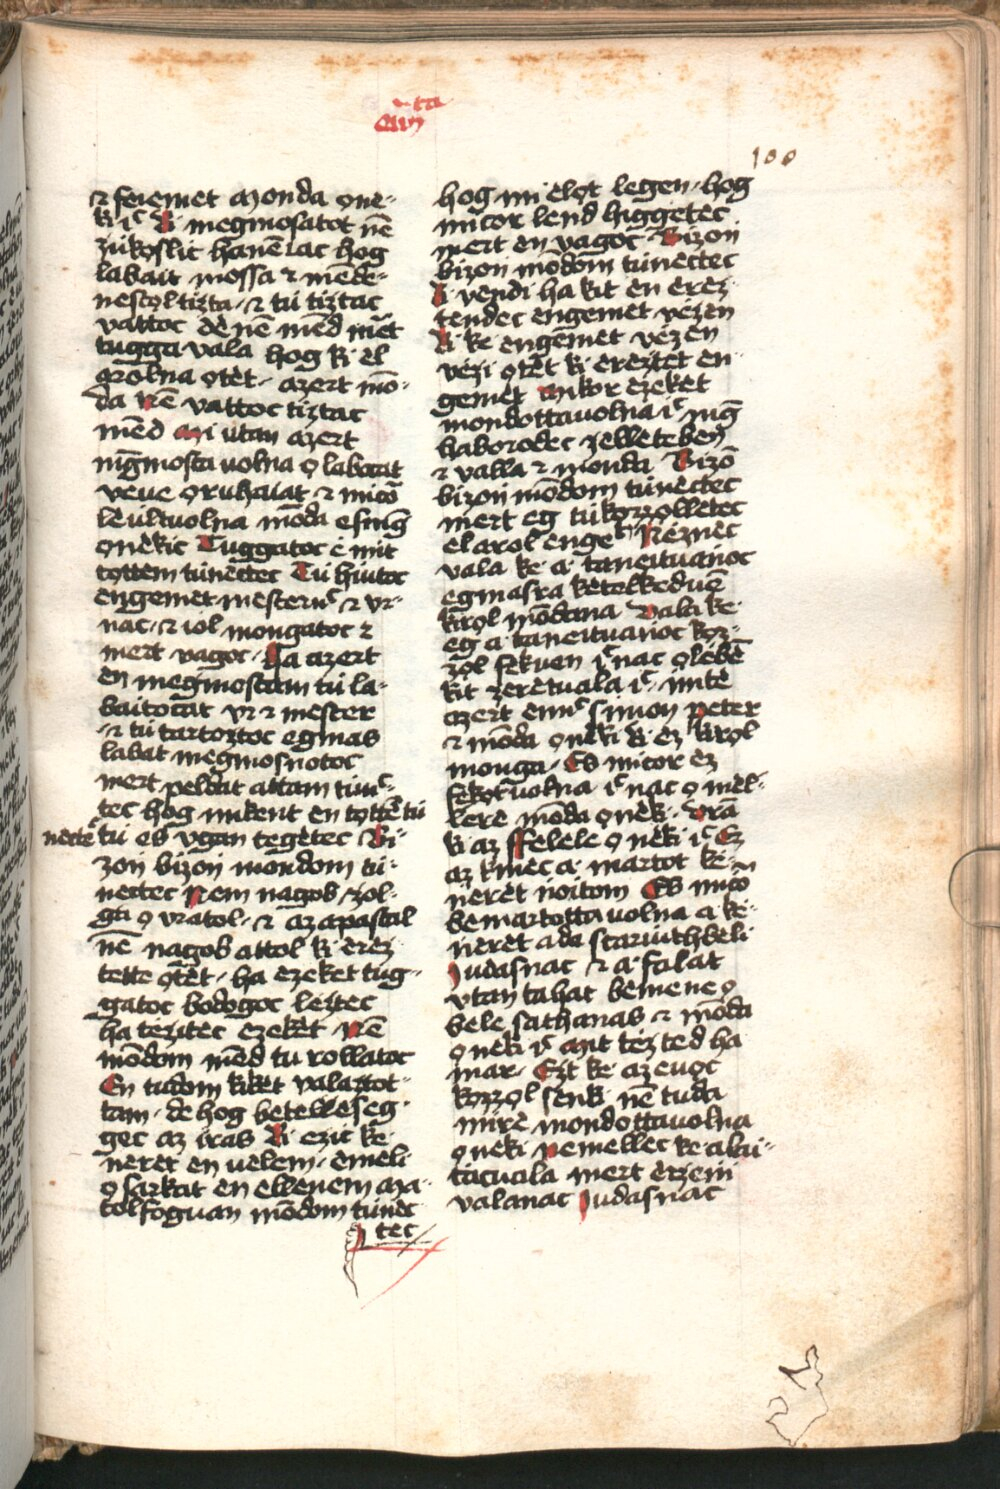 100
⁊ feiemet Monda one-
ki iͨ Ki megmosatot nē
zúkoslic hanē lac hog
labait mossa ⁊ mēde-
nestol tizta ⁊ tú tiztac
vattoc dē nē mēd mēt
tugga vala hog ki èl
arolna otèt azert mō-
da Nē vattoc tiztac
mēd Mi utan azert
mḡmosta uolna o labocat
veue o ruhaiat ⁊ micō
lèult uolna mōda esmḡ
onèkic Tuggatoc e mit
tottem túnectec Tú hiutoc
engemet mesterńc ⁊ vr-
nac ⁊ iol mongatoc ⁊
mert vagoc Ha azert
èn megmostam tú la-
baitocat vr ⁊ mester
⁊ tú tartoztoc egmas
labat megmosnotoc
mert peldat attam túń-
tec hog mikent èn tottē tú
nectèc tú es vgan tegètec Bi-
zon bizon mondom tú-
nectec Nem nagob zol-
ga o vratol ⁊ az apastal
nē nagob attol ki èrez-
tette otèt ha ezeket tug-
gatoc bodogoc leztec
ha tèzitec ezeket Nē
mōdom mēd tú rollatoc
En tudom kiket valaztot-
tam de hog betellèseg-
gec az iras Ki ezic ke-
nèrèt èn vèlem èmeli
o sarkat èn ellenem Ma-
tol foguan mōdom túnèc-
tec
hog mi èlot legen hog
micor lènd higgètec
mert èn vagoc Bizon
bizon mōdom túnectec
Ki vèndi ha kit èn èrez-
tendec engemet vèzèn
Ki kè engemet vèzèn
vèzi otèt ki èreztèt en-
gemèt Mikor ezeket
mondotta uolna iͨ mḡ
haborodec zèllètèbèn
⁊ valla ⁊ monda Bizō
bizon mōdom túnectec
mert eg tú kozzolletec
el arol engeͫ Nèznèc
vala ke a taneituanoc
egmasra kètèlkeduē
kirol mōdana Vala ke
eg a taneituanoc koz-
zol fèkuen iͨnac o lèbē
kit zerèt uala iͨ intè
azert enńc simon peter
⁊ mōda onèki Ki ez kirol
monga Es micor ez
fèkot uolna iͨnac o mèl-
lere mōda onèki Vrā
ki az ffèlèle onèki iͨ Ez
az kinec a martot ke-
nèrèt noitom Es micō
bèmartotta uolna a ke-
nèrèt ada scariuthbèli
Judasnac ⁊ a falat
vtan tahat bèmène o
bèle sathanas ⁊ mōda
onèki iͨ Mit tèz tèd ha-
mar Ezt ke az èuoc
kozzol sènki nē tuda
mirè mondotta uolna
onèki Nemellec ke alui-
tac uala mert erzeni
valanac Judasnac